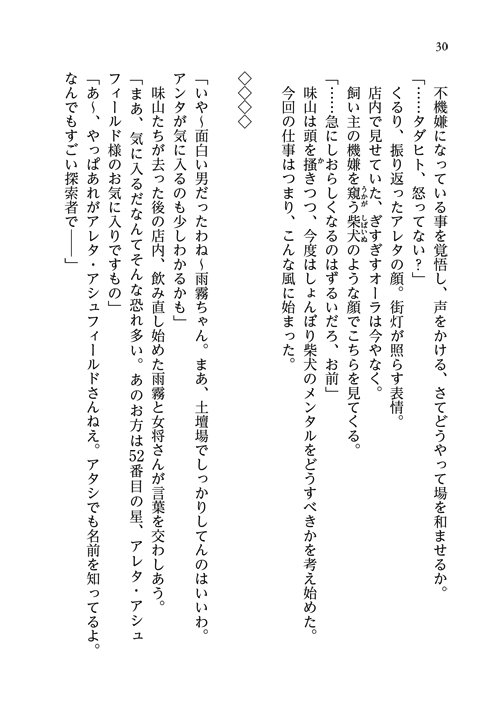 30
不機嫌になっている事を覚悟し、声をかける、さてどうやって場を和ませるか。
「……タダヒト、怒ってない？」
くるり、振り返ったアレタの顔。街灯が照らす表情。
店内で見せていた、ぎすぎすオーラは今やなく。
飼い主の機嫌を窺う柴犬のような顔でこちらを見てくる。
「……急にしおらしくなるのはずるいだろ、お前」
味山は頭を掻きつつ、今度はしょんぼり柴犬のメンタルをどうすべきかを考え始めた。
今回の仕事はつまり、こんな風に始まった。
◇◇◇◇
「いや～面白い男だったわね～雨霧ちゃん。まあ、土壇場でしっかりしてんのはいいわ。
アンタが気に入るのも少しわかるかも」
味山たちが去った後の店内、飲み直し始めた雨霧と女将さんが言葉を交わしあう。
「まあ、気に入るだなんてそんな恐れ多い。あのお方は52番目の星、アレタ・アシュ
フィールド様のお気に入りですもの」
「あ～、やっぱあれがアレタ・アシュフィールドさんねえ。アタシでも名前を知ってるよ。
なんでもすごい探索者で――」